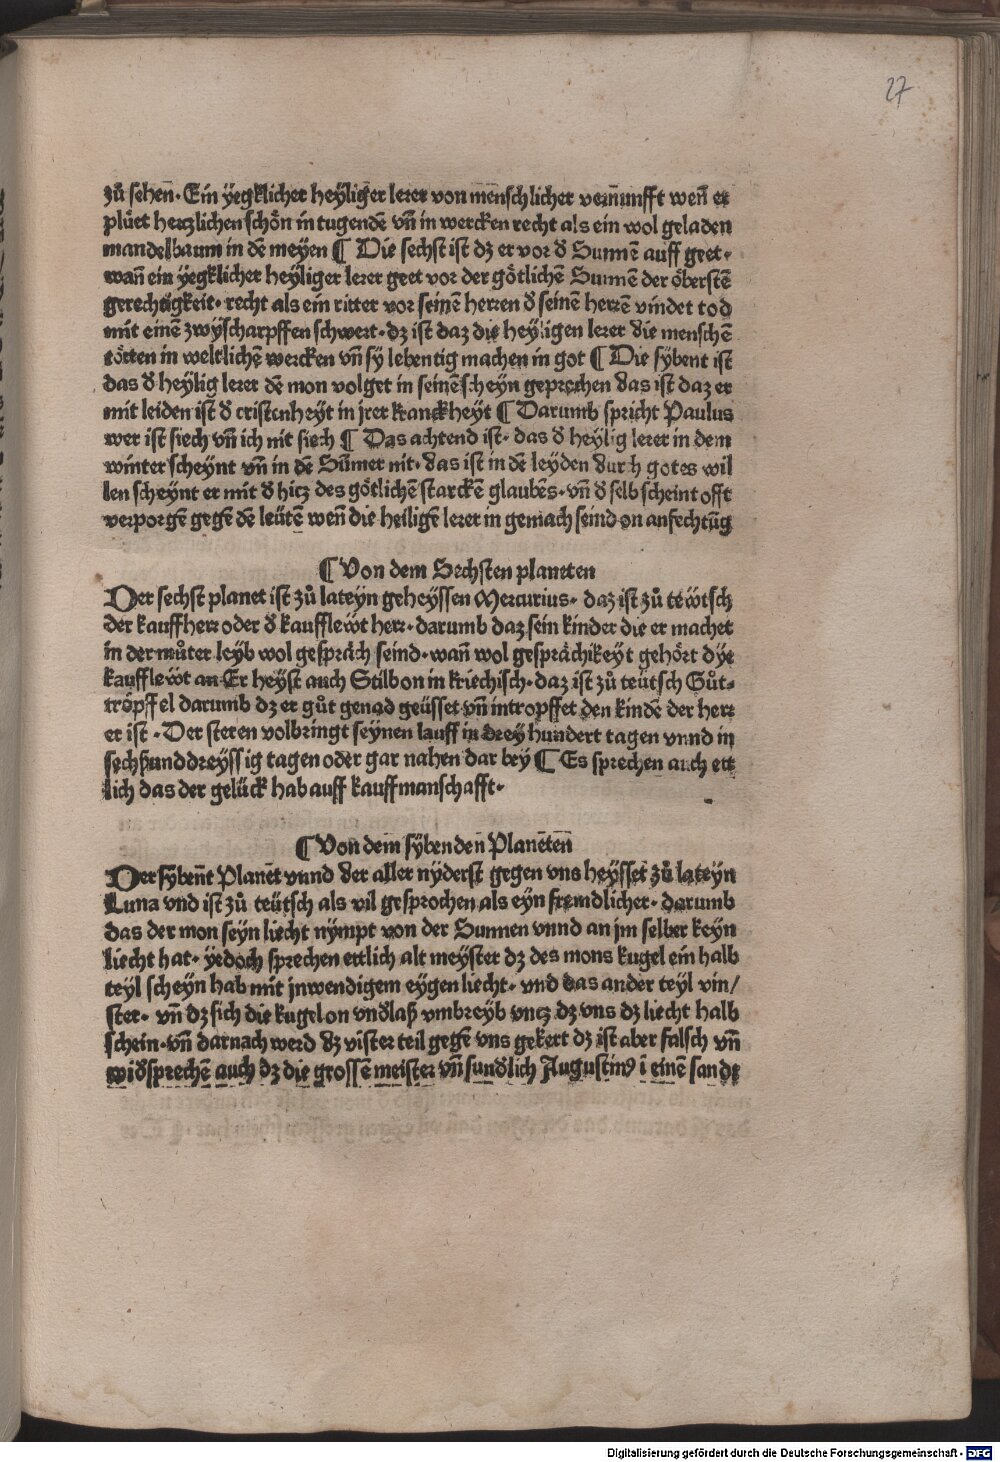 27
zů sehen. Ein yegklicher heyliger lerer von menschlicher vernunfft wen̄ er
plüet hertzlichen schön in tugendē vn̄ in wercken recht als ein wol geladen
mandelbaum in dē meyen ¶ Die sechst ist dz er vor d̄ Sunnē auff geet.
wan̄ ein yegklicher heyliger lerer geet vor der götlichē Sunnē der öberstē
gerechtigkeit. recht als ein ritter vor seinē herren d̄ seinē herrē vindet tod
mit einē zwyscharpffen schwert. dz ist daz die heyligen lerer die menschē
tötten in weltlichē wercken vn̄ sy lebentig machen in got ¶ Die sybent ist
das d̄ heylig lerer dē mon volget in seinē scheyn geprechen das ist daz er
mit leiden ist d̄ cristenheyt in jrer kranckheyt ¶ Darumb spricht Paulus
wer ist siech vn̄ ich nit siech ¶ Das achtend ist. das d̄ heylig lerer in dem
winter scheynt vn̄ in dē Sūmer nit. das ist in dē leyden durh gotes wil
len scheynt er mit d̄ hicz des götlichē starckē glaubēs. vn̄ d̄ selb scheint offt
verporgē gegē dē leütē wen̄ die heiligē lerer in gemach seind on anfechtūg
¶ Von dem Sechsten planeten
Der sechst planet ist zů lateyn geheyssen Mercurius. daz ist zů tewtsch
der kauffherr oder d̄ kaufflewt herr. darumb daz sein kinder die er machet
in der můter leyb wol gespräch seind. wan̄ wol gesprächikeyt gehört dye
kauftlewt an Er heyst auch Stilbon in kriechisch. daz ist zů teutsch Gůt-
tröpffel darumb dz er gůt genad geüsset vn̄ intropffet den kindē der herr
er ist . Der steren volbringt seynen lauff in drey hundert tagen vnnd in
sechßunddreyssig tagen oder gar nahen dar bey ¶ Es sprechen auch ett
lich das der gelück hab auff kauffmanschafft.
¶ Von dem sybenden Planeten
Der sybent Planet vnnd der aller nyderst gegen vns heysset zů lateyn
Luna vnd ist zů teütsch als vil gesprochen als eyn fremdlicher. darumb
das der mon seyn liecht nympt von der Sunnen vnnd an jm selber keyn
liecht hat. yedoch sprechen ettlich alt meyster dz des mons kugel ein halb
teyl scheyn hab mit jnwendigem eygen liecht. vnd das ander teyl vin/
ster. vn̄ dz sich die kugel on vnd̄laß vmbreyb vncz dz vns dz liecht halb
schein. vn̄ darnach werd dz vister teil gegē vns gekert dz ist aber falsch vn̄
wid̄sprechē auch dz die grossē meister vn̄ sund̄lich Augustinꝰ ī einē sandt
Digitalisierung gefördert durch die Deutsche Forschungsgemeinschaft - DFG